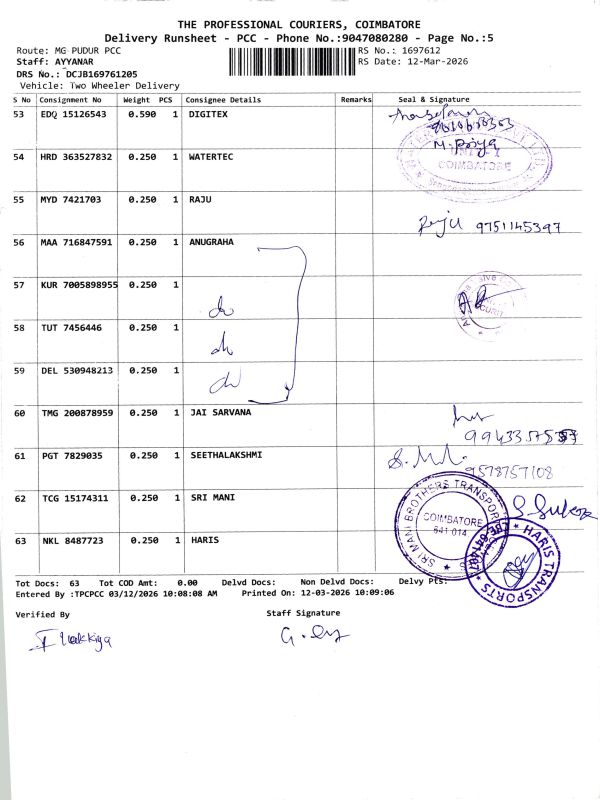 THE PROFESSIONAL COURIERS, COIMBATORE
Delivery Runsheet - PCC - Phone No.:9047080280 - Page No.:5
Route: MG PUDUR PCC
RS No.: 1697612
Staff: AYYANAR
RS Date: 12-Mar-2026
DRS No.: DCJB169761205
Vehicle: Two Wheeler Delivery
S No Consignment No Weight PCS Consignee Details Remarks Seal & Signature
53 EDQ 15126543 0.590 1 DIGITEX
54 HRD 363527832 0.250 1 WATERTEC
M. Priya
COIMBATORE
55 MYD 7421703 0.250 1 RAJU
Raju 9751145397
56 MAA 716847591 0.250 1 ANUGRAHA
57 KUR 7005898955 0.250 1
do
58 TUT 7456446 0.250 1
do
59 DEL 530948213 0.250 1
do
60 TMG 200878959 0.250 1 JAI SARVANA
61 PGT 7829035 0.250 1 SEETHALAKSHMI
9578757108
62 TCG 15174311 0.250 1 SRI MANI
SRI MANI BROTHERS TRANSPORT
COIMBATORE
641 014
63 NKL 8487723 0.250 1 HARIS
HARIS TRANSPORTS
CBE-641407
Tot Docs: 63 Tot COD Amt: 0.00 Delvd Docs: Non Delvd Docs: Delvy Pts:
Entered By :TPCPCC 03/12/2026 10:08:08 AM Printed On: 12-03-2026 10:09:06
Verified By
Staff Signature